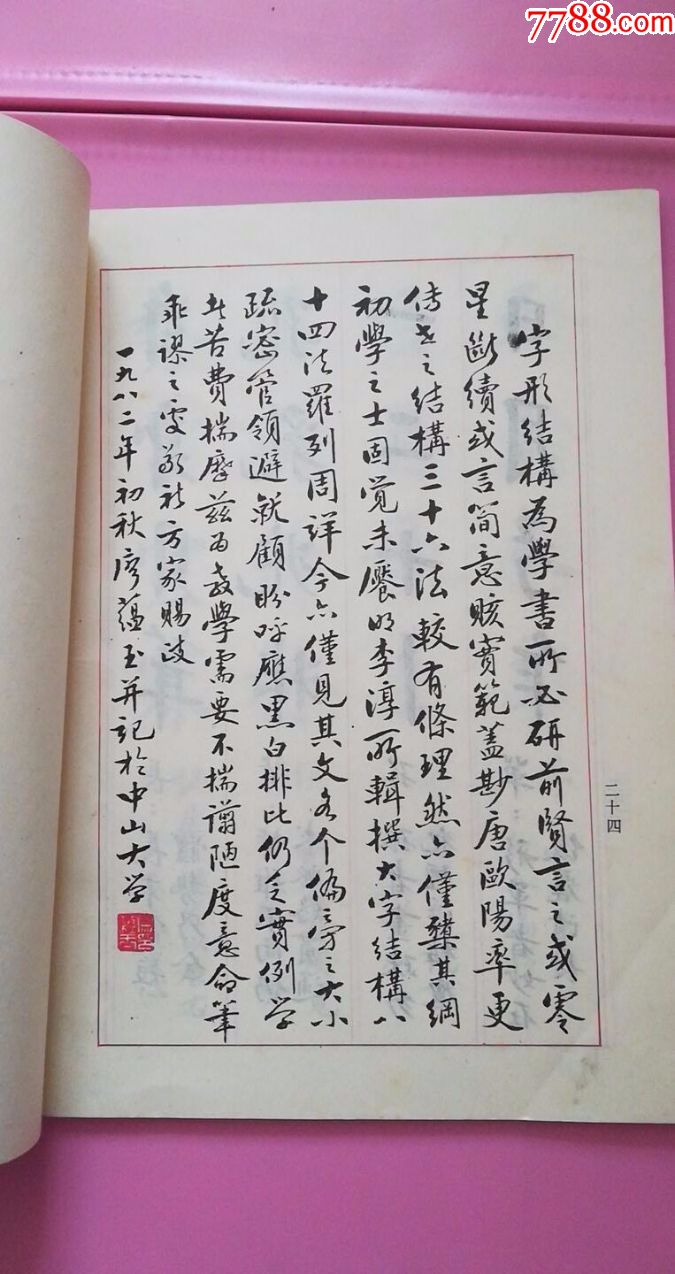 7788.com
字形結構為學書所必研前賢言之或零
星斷續或言簡意賅實範蓋尠唐歐陽率更
傳世之結構三十六法較有條理然亦僅釐其綱
初學之士固覺未饜明李淳所輯撰大字結構八
十四法羅列周詳今亦僅見其文各个偏旁之大小
疏密管領避就顧盼呼應黑白排比仍乏實例學
者苦費揣摩茲為教學需要不揣谫陋度意命筆
乖謬之處敬祈方家賜政
一九八二年初秋廖蘊玉并記於中山大学
二十四